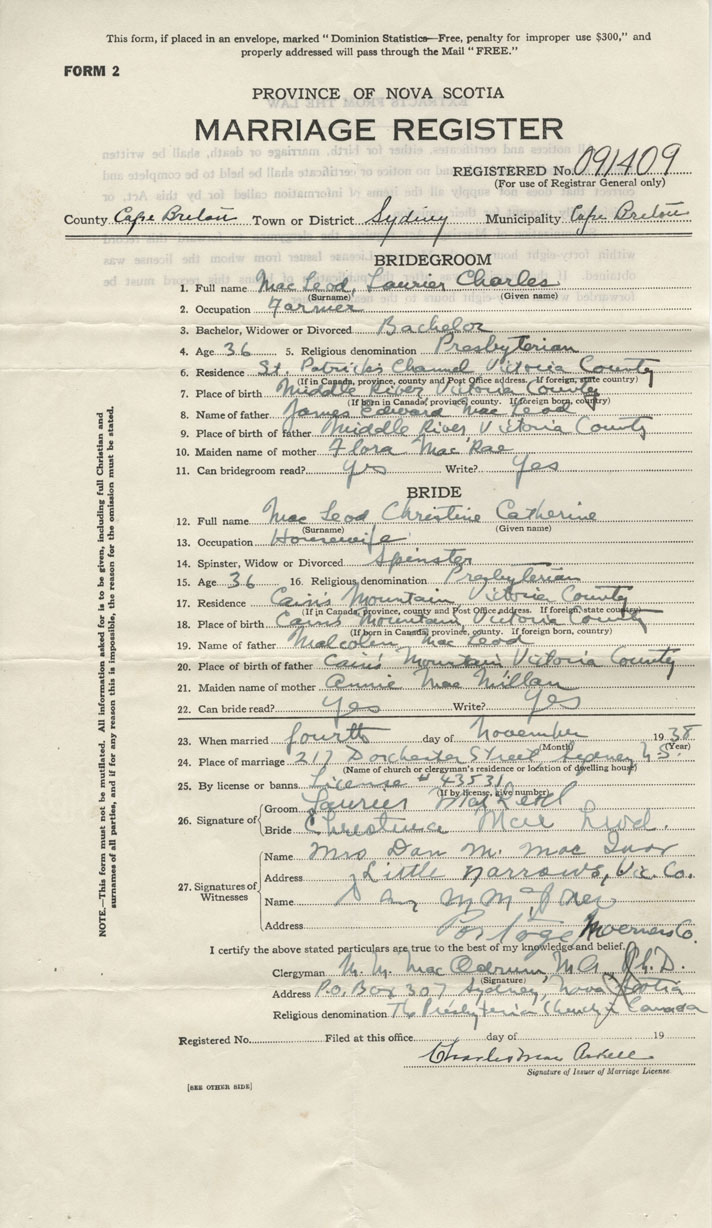 This form, if placed in an envelope, marked "Dominion Statistics—Free, penalty for improper use $300," and
properly addressed will pass through the Mail "FREE."
FORM 2
PROVINCE OF NOVA SCOTIA
MARRIAGE REGISTER
REGISTERED No. 091409
(For use of Registrar General only)
County Cape Breton Town or District Sydney Municipality Cape Breton
BRIDEGROOM
1. Full name Mac Leod, Laurier Charles
(Surname) (Given name)
2. Occupation Farmer
3. Bachelor, Widower or Divorced Bachelor
4. Age 36 5. Religious denomination Presbyterian
6. Residence St. Patricks Channel Victoria County
(If in Canada, province, county and Post Office address. If foreign, state country)
7. Place of birth Middle River Victoria County
(If born in Canada, province, county. If foreign born, country)
8. Name of father James Edward Mac Leod
9. Place of birth of father Middle River Victoria County
10. Maiden name of mother Flora Mac Rae
11. Can bridegroom read? yes Write? yes
BRIDE
12. Full name Mac Leod Christine Catherine
(Surname) (Given name)
13. Occupation Housewife
14. Spinster, Widow or Divorced Spinster
15. Age 36 16. Religious denomination Presbyterian
17. Residence Cains Mountain Victoria County
(If in Canada, province, county and Post Office address. If foreign, state country)
18. Place of birth Cains Mountain, Victoria County
(If born in Canada, province, county. If foreign born, country)
19. Name of father Malcolm Mac Leod
20. Place of birth of father Cains Mountain Victoria County
21. Maiden name of mother Annie Mac Millan
22. Can bride read? yes Write? yes
23. When married fourth day of November 1938
(Month) (Year)
24. Place of marriage 217 Dorchester Street, Sydney N.S.
(Name of church or clergyman's residence or location of dwelling house)
25. By license or banns License # 43531
(If by license, give number)
26. Signature of
Groom Laurier MacLeod
Bride Christina Mac Leod.
27. Signatures of Witnesses
Name Mrs Dan M. Mac Ivor
Address Little Narrows, Vic. Co.
Name Dan M Mc Iver
Address Portage Inverness Co.
I certify the above stated particulars are true to the best of my knowledge and belief.
Clergyman M. M. Mac Odrum, M.A., Ph.D.
(Signature)
Address P.O. Box 307 Sydney, Nova Scotia
Religious denomination The Presbyterian Church in Canada
Registered No. Filed at this office day of 19
Charles Mac Askell
Signature of Issuer of Marriage License
[SEE OTHER SIDE]
NOTE.—This form must not be mutilated. All information asked for is to be given, including full Christian and
surnames of all parties, and if for any reason this is impossible, the reason for the omission must be stated.